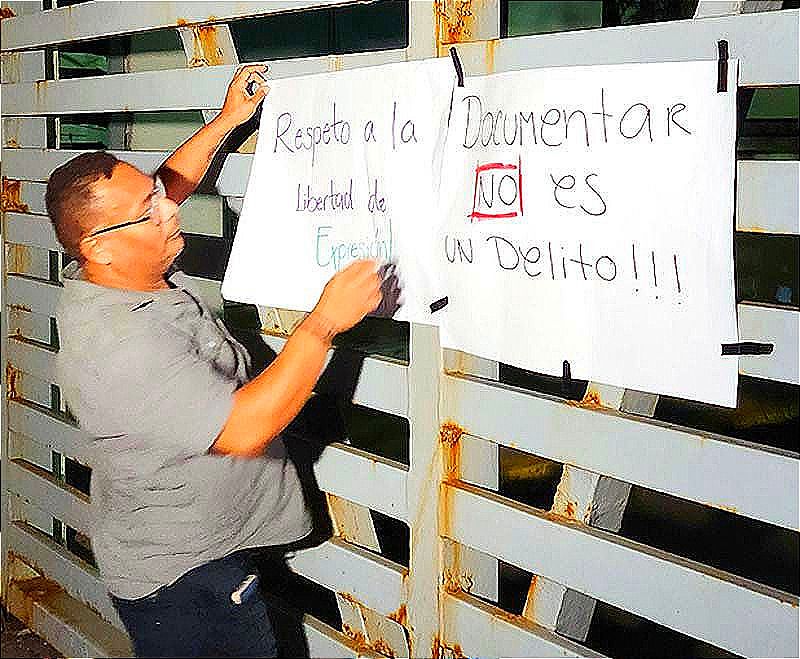 Respeto a la
Libertad de
Expresión!
Documentar
NO es
UN Delito!!!